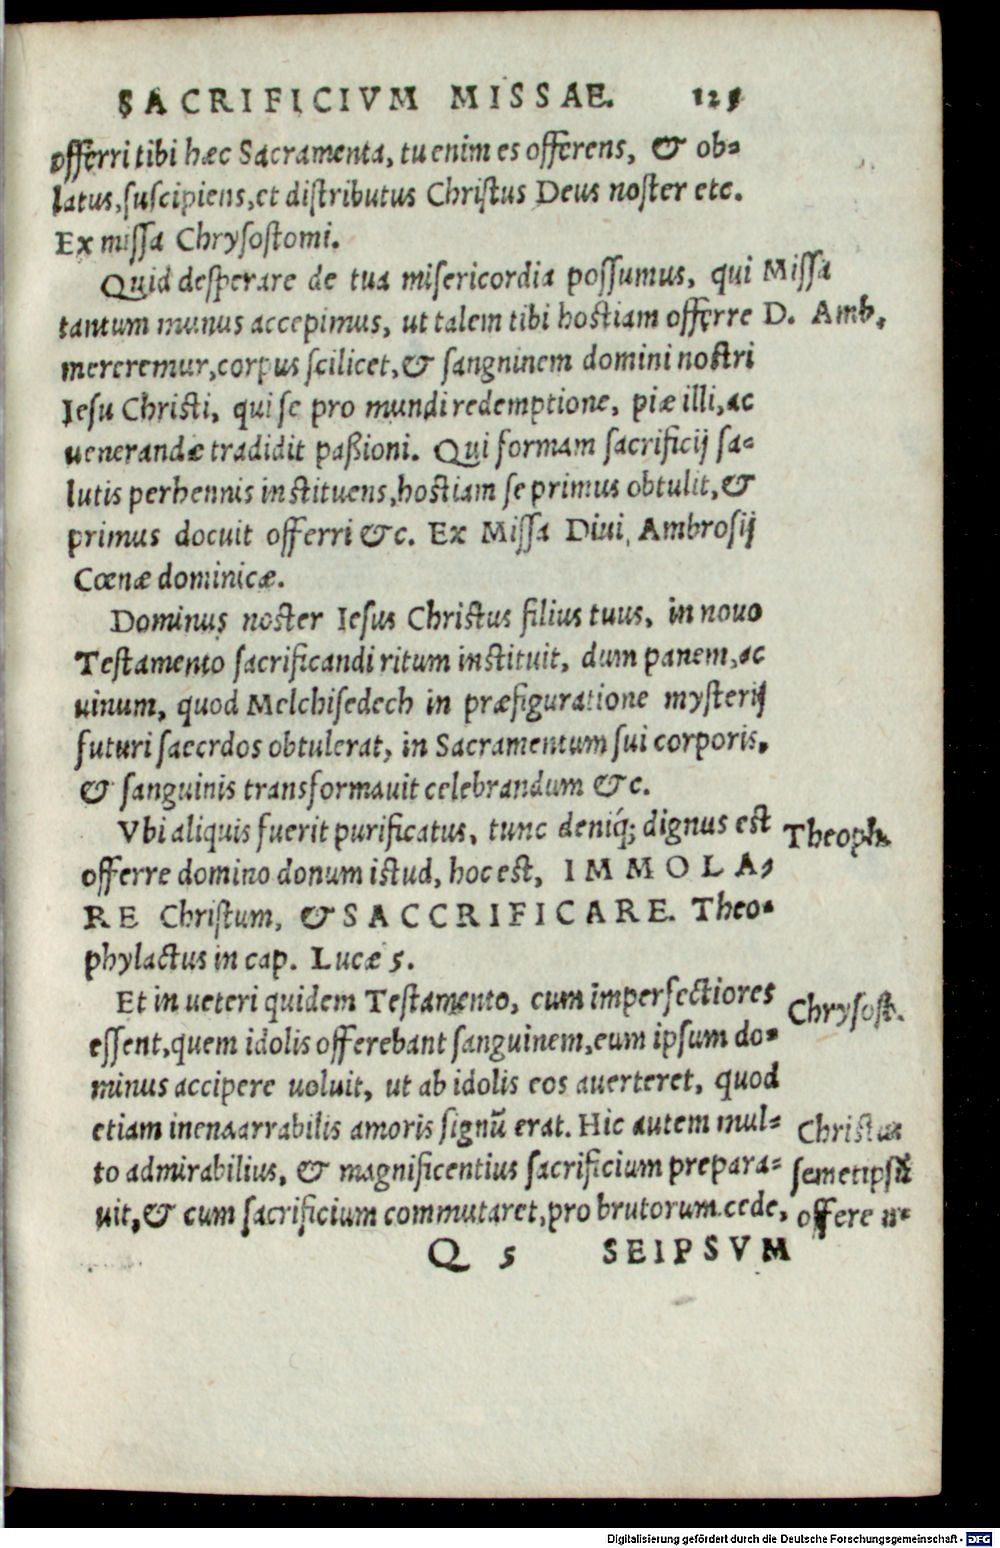 SACRIFICIVM MISSAE. 125
offerri tibi hæc Sacramenta, tu enim es offerens, & ob-
latus, suscipiens, et distributus Christus Deus noster etc.
Ex missa Chrysostomi.
Quid desperare de tua misericordia possumus, qui
Missa
tantum munus accepimus, ut talem tibi hostiam offerre
D. Amb.
mereremur, corpus scilicet, & sangninem domini nostri
Iesu Christi, qui se pro mundi redemptione, piæ illi, ac
uenerandæ tradidit paßioni. Qui formam sacrificij sa-
lutis perhennis instituens, hostiam se primus obtulit, &
primus docuit offerri &c. Ex Missa Diui Ambrosij
Cœnæ dominicæ.
Dominus noster Iesus Christus filius tuus, in nouo
Testamento sacrificandi ritum instituit, dum panem, ac
uinum, quod Melchisedech in præfiguratione mysterij
futuri sacerdos obtulerat, in Sacramentum sui corporis,
& sanguinis transformauit celebrandum &c.
Vbi aliquis fuerit purificatus, tunc deniq; dignus est
Theoph.
offerre domino donum istud, hoc est, IMMOLA-
RE Christum, & SACCRIFICARE. Theo-
phylactus in cap. Lucæ 5.
Et in ueteri quidem Testamento, cum imperfectiores
Chrysost.
essent, quem idolis offerebant sanguinem, eum ipsum do-
minus accipere uoluit, ut ab idolis eos auerteret, quod
etiam inenaarrabilis amoris signū erat. Hic autem mul-
Christus
to admirabilius, & magnificentius sacrificium prepara-
semetipsū
uit, & cum sacrificium commutaret, pro brutorum cede,
offere
Q 5 SEIPSVM
Digitalisierung gefördert durch die Deutsche Forschungsgemeinschaft - DFG